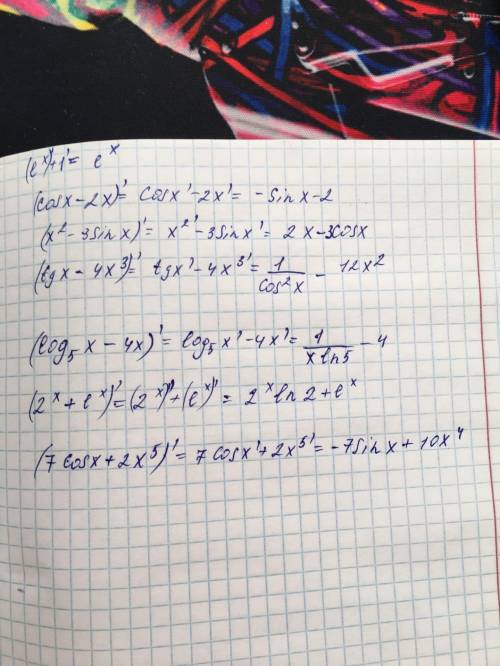 (e^x)'+1' = e^x
(cosx-2x)' = cosx'-2x' = -sinx-2
(x²-3sinx)' = x²'-3sinx' = 2x-3cosx
(tgx-4x³)' = tgx'-4x³' = 1/cos²x - 12x²
(log₅x-4x)' = log₅x'-4x' = 1/xln5 - 4
(2^x+e^x)' = (2^x)'+(e^x)' = 2^x ln2+e^x
(7cosx+2x⁵)' = 7cosx'+2x⁵' = -7sinx+10x⁴